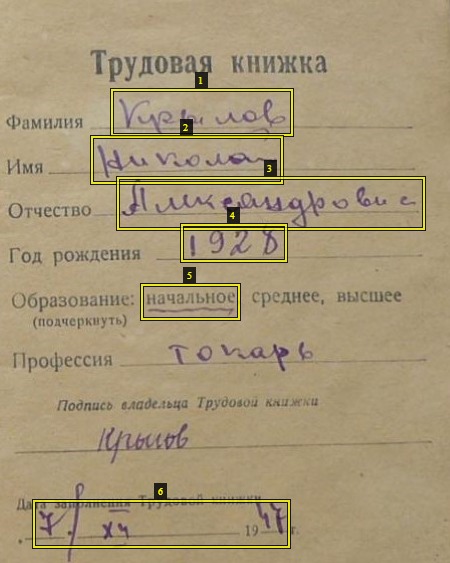 Трудовая книжка
Фамилия Крылов
Имя Николай
Отчество Александрович
Год рождения 1928
Образование: начальное среднее, высшее
(подчеркнуть)
Профессия токарь
Подпись владельца Трудовой книжки
Крылов
Дата заполнения Трудовой книжки
7/ XII 1947 г.